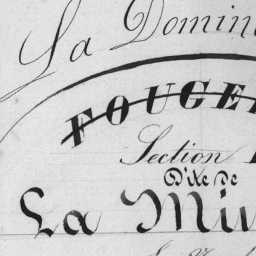 La Domin
FOUGE
Section
Dite de
La Mi